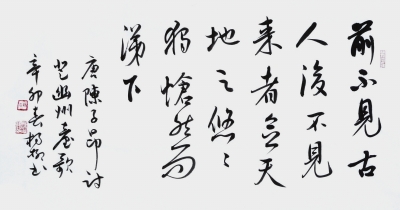 前不見古
人後不見
来者念天
地之悠〻
獨愴然而
涕下
唐陳子昂詩
登幽州臺歌
辛卯春楊柳書